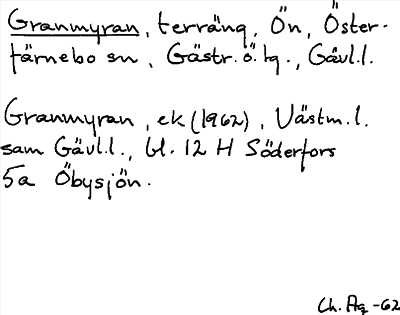 Granmyran, terräng, Ön, Öster-
färnebo sn, Gästr. ö. tg., Gävl.l.
Granmyran, ek (1962), Västm.l.
sam Gävl.l., bl. 12 H Söderfors
5a Öbysjön.
Ch. Ag -62